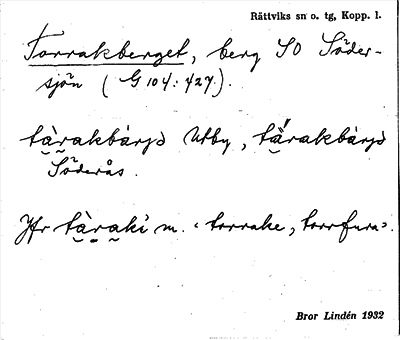 Rättviks sn o. tg, Kopp. l.
Torrakberget, berg SO Söder-
sjön (G 104: 427.).
tàrakbàrjə Utby, tä́rakbàrjə
Söderås.
Jfr tàraki m. ‹torrake, torrfura›.
Bror Lindén 1932